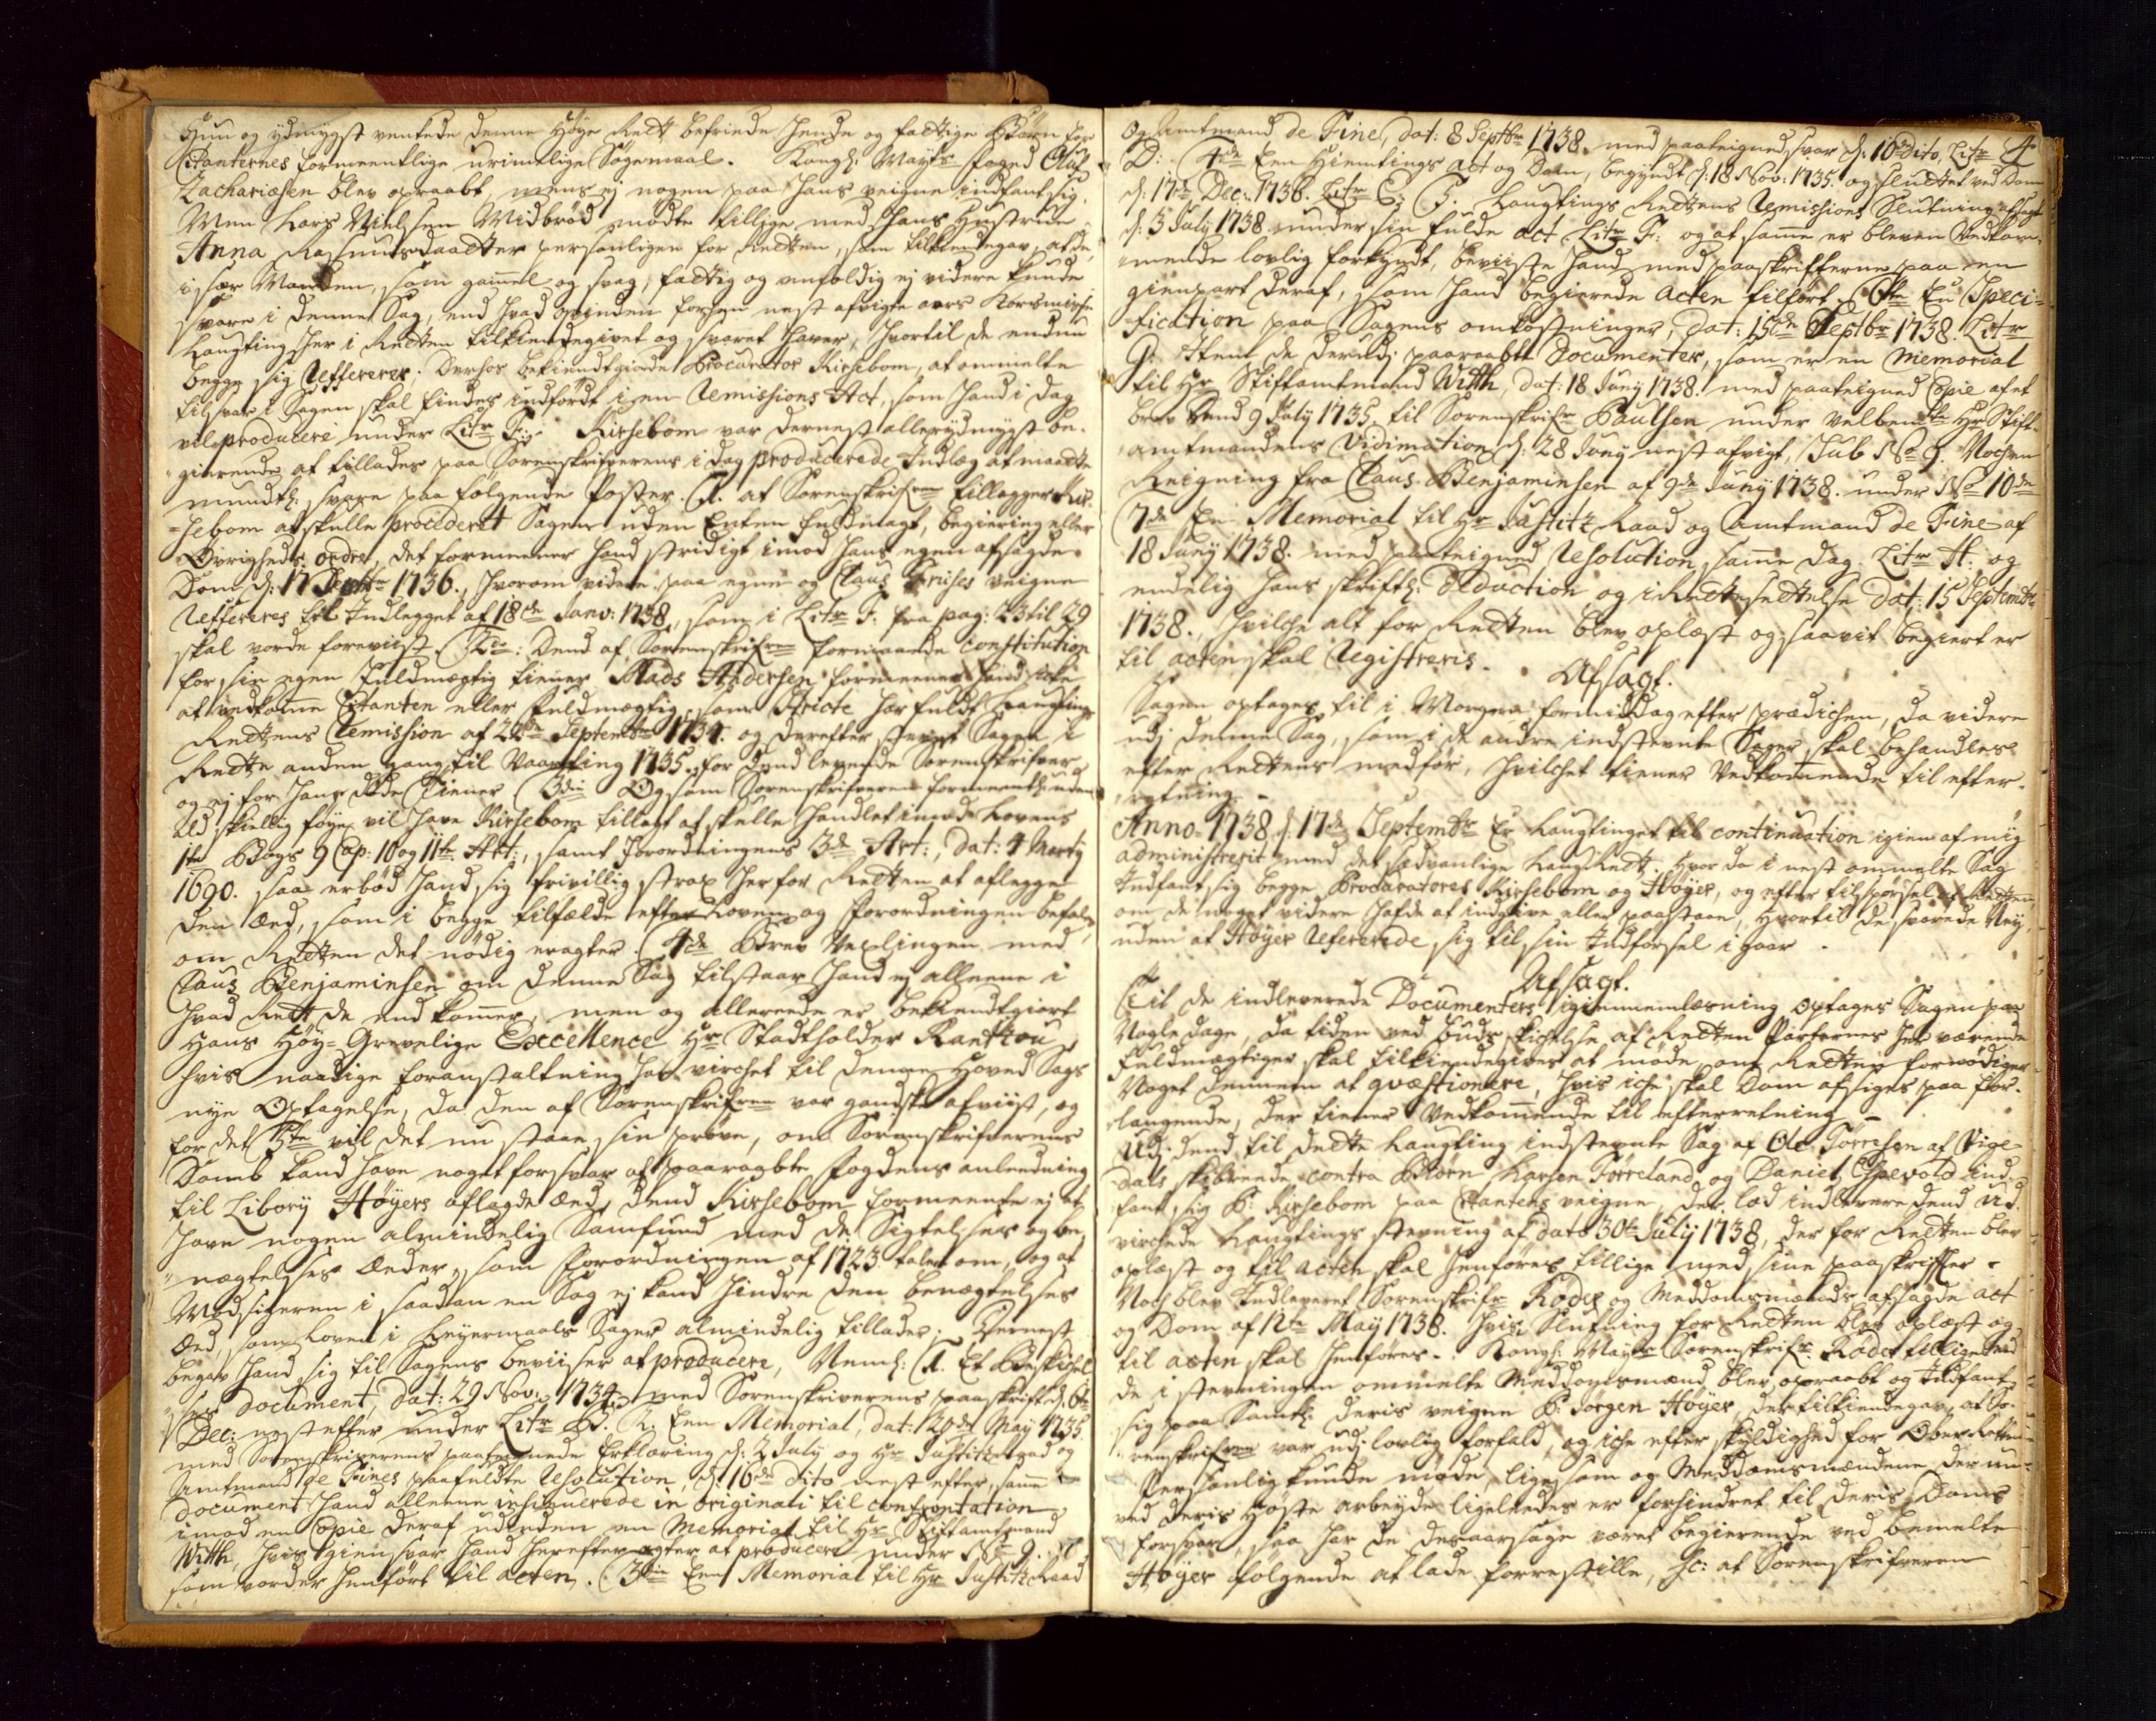 Hun og ydmygst ventede denne Høye Rett befriede hende og fattige Børn for
Citanternes formeentlige urimelige Søgemaal. Kongl: Mayts foged Oluf
Zachariæsen blev opraabt, mens ej nogen paa Hans veigne indfant sig.
Men Lars Nielsen Midbrød mødte tillige med Hans Hustrue
Anna Rasmusdaatter personligen for Retten, som tilkiendegav, at de,
især Manden, som gamel og svag, fattig og eenfoldig ej videre kunde
svare i denne Sag, end hvad qvinden forhen nest afvigte aars Korsmisse
Laugting her i Retten tilkiendegivet og svaret haver, hvortil de endnu
begge sig Refererer; Derhos bekiendtgiorde Procurator Kirsebom, at ommelte
tilsvar i Sagen skal findes indført i en Remissions Act, som Hand i dag
vil producere under Litr F:. Kirsebom var dernest allerydmygst be-
gierende at tillades paa Sorenskriverens i dag producerede Indlæg at maatte
mundtl: svare paa følgende Poster. (1. at Sorenskrifren tillegger Kir-
sebom at skulle procederet Sagen uden Enten fuldmagt, begiering eller
Øvrigheds ordre, det formeener Hand stridigt imod Hans egen afsagde
Dom d: 17 Dectr 1736., hvorom videre paa egne og Claus Friises veigne
Refereres til Indlegget af 18de Janv: 1738, som i Litr F: fra pag: 23 til 29
skal vorde foreviist. (2do: Dend af Sorenskrifren formaaende Constitution
for sin egen Fuldmægtig tiener Mads Andersen formeener Hand icke
at vedkomme Citanten eller fuldmægtig, som Stricte har fuldt Laugtings
Rettens Remission af 22de Septembr 1734. og derefter stevnt Sagen i
Rette anden gang til Vaarting 1735. for dend levende Sorenskrifver
og ej for Hans døde tiener (3die Og som Sorenskrifveren formeentl: uden
ald skiellig føye vil have Kirsebom tillagt at skulle handlet imod Lovens
1te Bogs 9 Cap: 10 og 11te Art:, samt Forordningens 3de Art:, dat: 4 Marty
1690. saa erbød Hand sig frivillig strax her for Retten at aflegge
den Eed, som i begge tilfælde efter Loven og Forordningen befales,
om Retten det nødig eragter. (4de Brev Vexlingen med
Claus Benjaminsen om denne Sag tilstaar Hand ej alleene i
hvad Rett de end kommer, men og allereede er bekiendtgiort
Hans Høy-Grevelige Excellence Hr Stadtholder Rantzou,
hvis naadige foranstaltning har virchet til denne Hoved Sags
nye Optagelse, da den af Sorenskrifren var gandske afviist, og
for det 5te vil det nu staae sin prøve, om Sorenskrifverens
Domb kand have noget forsvar af paaraabte Fogdens anleedning
til Libory Høyers aflagde Eed, dend Kirsebom formeente ej at
have nogen almindelig Samfund med de Sigtelses og be-
nægtelses Eeder, som Forordningen af 1723 taler om, og at
Medsigeren i saadan en Sag ej kand hindre den benægtelses
Eed som Loven i Leyermaals Sager almindelig tillader. Dernest
begav Hand sig til Sagens beviiser at producere, Neml: (1. Et Beskichel-
ses document, dat: 29 Nov: 1734 med Sorenskriverens paaskrift d: 6te
Dec: nest efter under Litr B. (2. Een Memorial, dat: 20de May 1735.
med Sorenskriverens paategnede Erklæring d: 2 July og Hr Justitz Raad og
Amtmand de Fines paafuldte Resolution, d: 16de dito nest efter, samme
document Hand alleene insinuerede in originali til Confrontation
imod en Copie deraf uden en Memorial til Hr Stiftamtmand
Witth, hvis giensvar Hand herefter agter at producere under No 9. og
som vorder henført til acten. (3die Een Memorial til Hr Justitz Raad
4
og Amtmand de Fine, dat: 8 Septbr 1738. med paateignede svar d: 10 Dito, Litr
D: (4de Een Hiemtings Act og Dom, begyndt d: 18 Nov: 1735. og sluttet ved Dom
d: 17de Dec: 1736. Litr E: (5. Laugtings Rettens Remissions Slutning afsagt
d: 3 July 1738. under sin fulde Act Litr F: og at samme er bleven Vedkom-
mende lovlig forkyndt, beviiste Hand med paaskrifterne paa en
gienpart deraf, som Hand begierede Acten tilført. (6te En Speci-
fication paa Sagens omkostninger, dat: 15de Septbr 1738. Litr
G: Item de derudj paaraabte Documenter, som er en Memorial
til Hr Stiftamtmand Witth, dat: 18 Juny 1738. med paateignede Copie af et
brev dend 9 July 1735 til Sorenskrifr Paulsen under Velbemte Hr Stift-
amtmandens Vidimation d: 28 Juny nest afvigt, Sub No 9. Nochen
Reigning fra Claus Benjaminsen af 9de Juny 1738. under No 10de
(7de En Memorial til Hr Justitz Raad og Amtmand de Fine af
18 Juny 1738. med paateigned Resolution, same dag Litr H: og
endelig hans skriftl: Deduction og i Rettesettelse dat: 15 Septembr
1738., hvilche alt for Retten blev oplæst og saavit begiert er
til acten skal Registreris.
Afsagt.
Sagen optages til i Morgen formiddag efter prædichen, da videre
udj denne Sag, som i de andre indstevnte Sager skal behandles
efter Rettens medfør, hvilchet tiener Vedkommende til efter-
retning.
Anno 1738. d: 17de Septembr Er Laugtinget til continuation igien af mig
administrerit med det sædvanlige Laug Rett. Hvor da i nest ommelte Sag
Indfant sig begge Procuratores Kirsebom og Høyer, og efter tilspørsel af Retten,
om de noget videre hafde at indgive eller paastaae, hvortil de svarede Ney
uden at Høyer Refererede sig til sin Indførsel i gaar.
Afsagt.
Til de indleverede Documenters igiennemlæsning optages Sagen paa
Nogle dage, da tiden ved buds skichelse af Retten Parternes her værende
fuldmægtiger skal tilkiendegives at møde, om Retten fornødiger
Noget dennem at qvæstionere, hvis iche skal Dom afsiges paa for-
langende, der tiener Vedkommende til efterretning.
Udj dend til dette Laugting indstevnte Sag af Ole Torresen af Vige-
dals skibreede contra Biørn Larsen Tørreland og Daniel Espevold ind-
fant sig Pr: Kirsebom paa Citantens veigne, der lod indlevere dend ud-
virchede Laugtings stevning af dato 30te July 1738, der for Retten blev
oplæst og til acten skal henføres tillige med sine paaskrifter.
Noch blev Indleveret Sorenskrifr Røders og Meddomsmænds afsagde act
og Dom af 12te May 1738. hvis Slutning for Retten blev oplæst og
til acten skal henføres. Kongl: Mayts Sorenskrifr Røder tillige med
de i stevningen ommelte Meddomsmænd blev opraabt og Indfant
sig paa Samtl: deris veigne Pr: Jørgen Høyer, der tilkiendegav, at So-
renskrifren var udj lovlig forfald, og iche efter skyldighed for Ober Retten
Personlig kunde møde, ligesom og Meddomsmændene der nu
ved deris Høste arbeyde ligeleedes er forhindret til deris Doms
forsvar, saa har de desaarsage været begierende ved bemelte
Høyer følgende at lade forrestille, Sc: at Sorenskrifveren